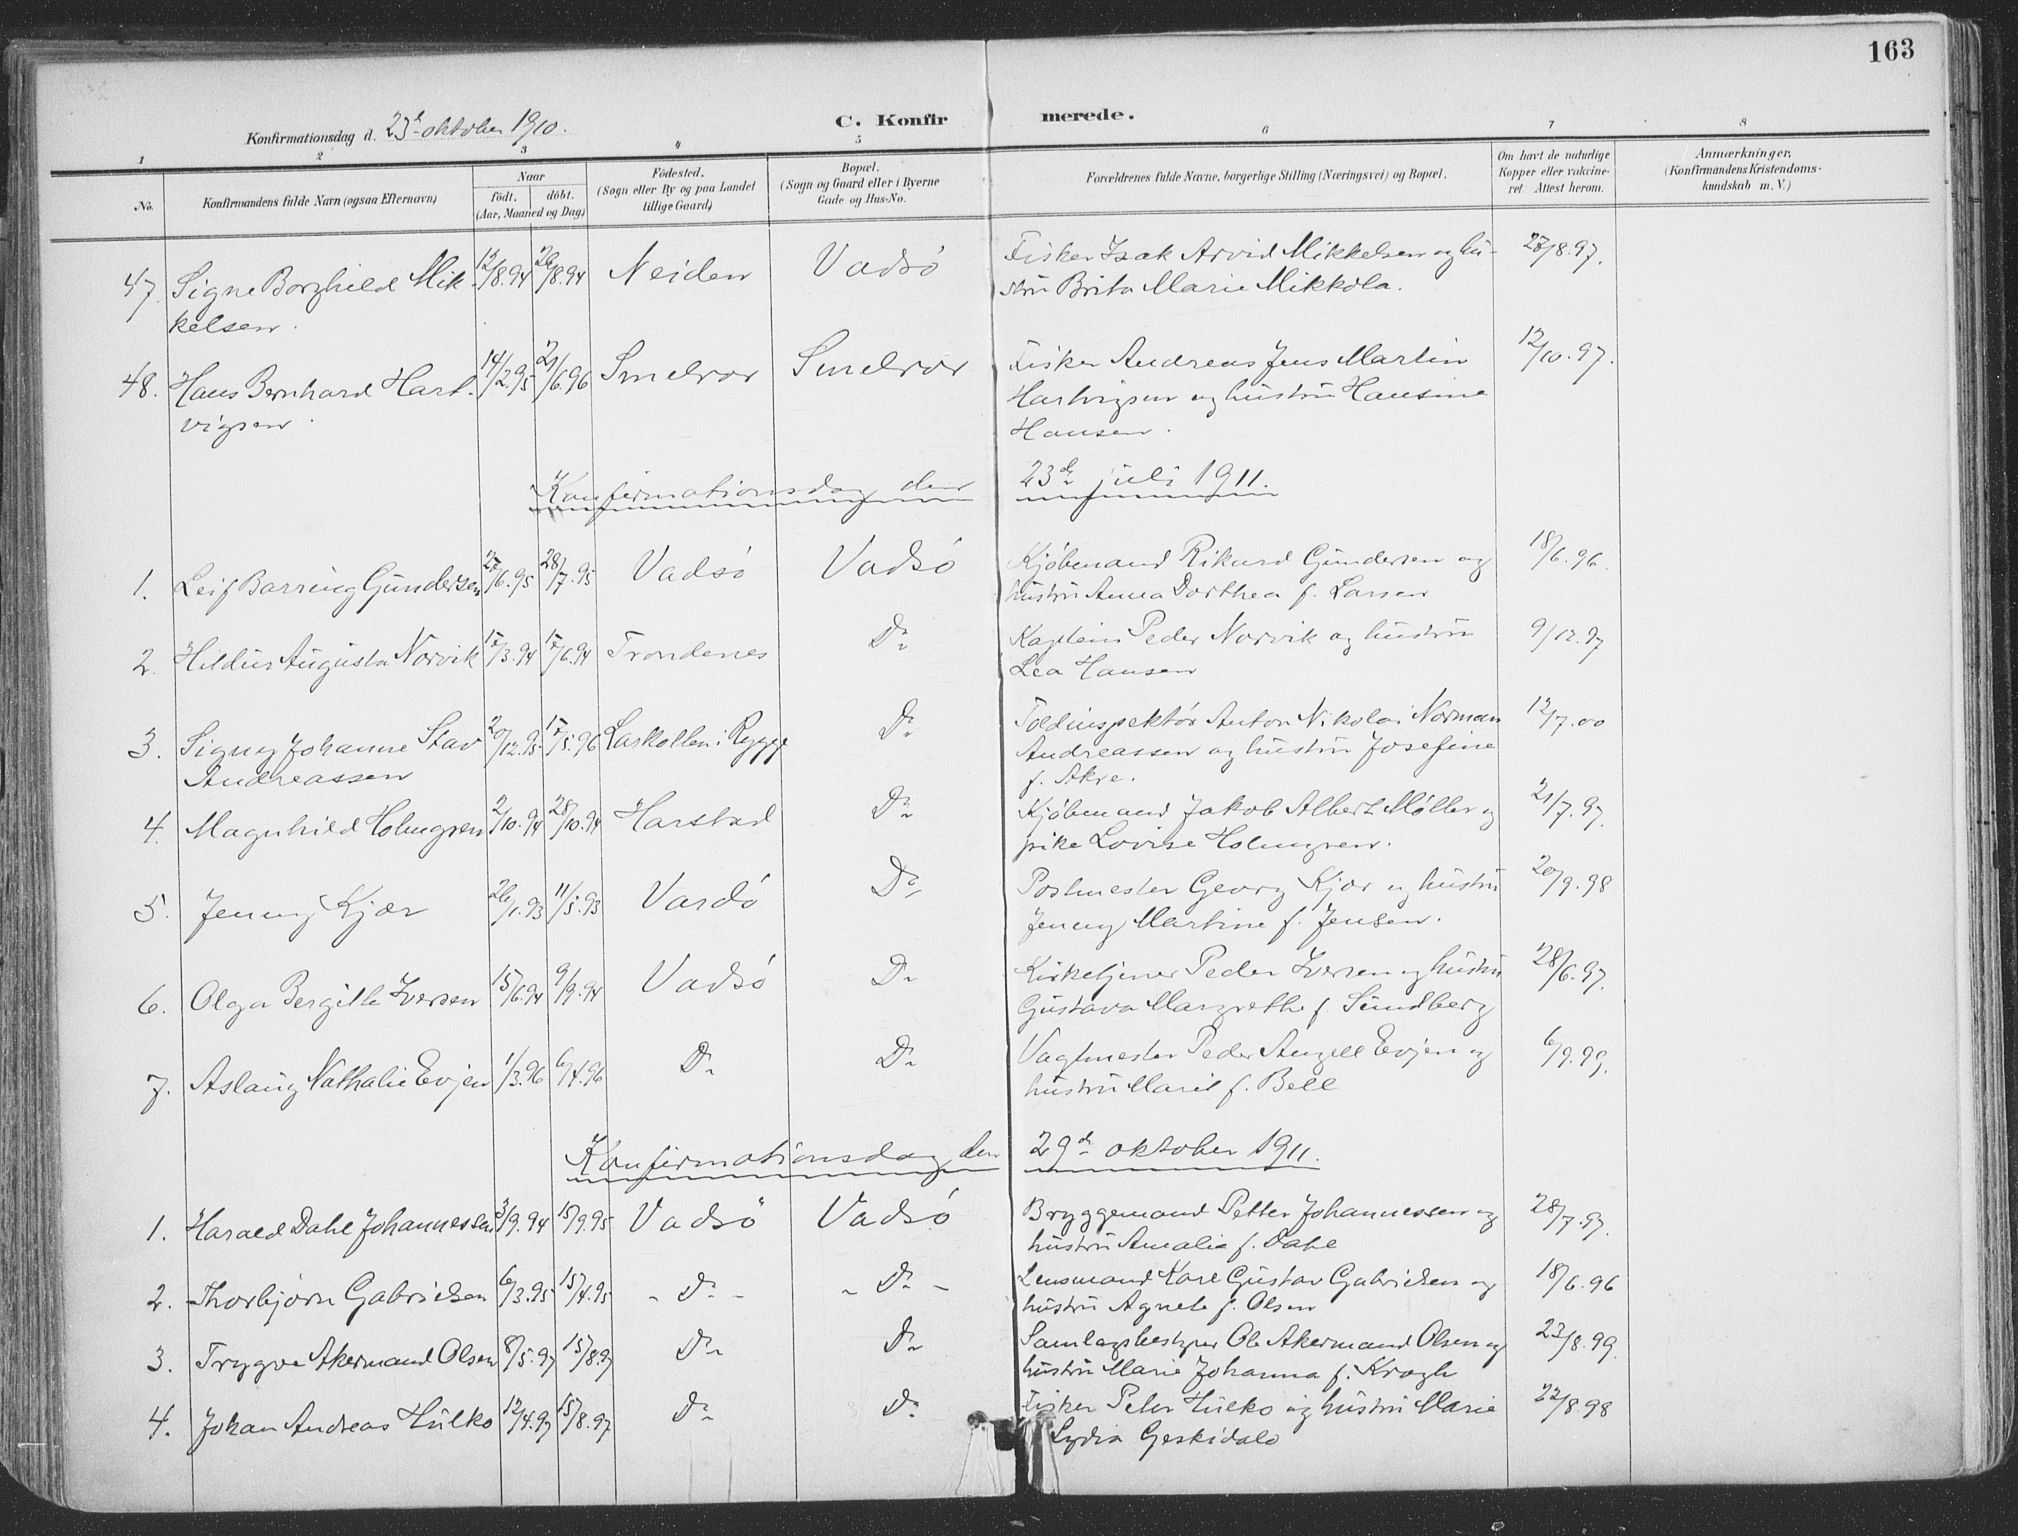 163
Konfirmationsdag d. 23de oktober 1910.
C. Konfirmerede.
1 2 3 4 5 6 7 8
No.
Konfirmandens fulde Navn (ogsaa Efternavn)
Naar
født. døbt.
(Aar, Maaned og Dag)
Fødested.
(Sogn eller By og paa Landet
tillige Gaard)
Bopæl.
(Sogn og Gaard eller i Byerne
Gade og Hus-No.
Forældrenes fulde Navne, borgerlige Stilling (Næringsvei) og Bopæl.
Om havt de naturlige
Kopper eller vakcine-
ret. Attest herom.
Anmærkninger.
(Konfirmandens Kristendoms-
kundskab m. V.)
47. Signe Borghild Mik- 12/8.94 26/8.94 Neiden Vadsö Fisker Isak Arvid Mikkelsen og hu- /8.97.
kelsen. stru Brita Marie Mikkola.
48. Hans Bernhard Hart- 14/2.95 21/6.96 Smelror Smelror Fisker Andreas Jens Martin 12/10.97.
vigsen. Hartvigsen og hustru Hansine
Hansen.
Konfirmationsdag den 23de juli 1911.
1. Leif Barring Gundersen /6.95 28/7.95 Vadsö Vadsö Kjöbmand Rikard Gundersen og 18/6.96.
hustru Anna Dorthea f. Larsen
2. Hildur Augusta Norvik /3.94 /6.94 Trondenes Do Kaptein Peder Norvik og hustru 9/12.97
Lea Hansen
3. Signy Johanne Stav 20/12.95 /5.96 Larkollen i Rygge Do Toldinspektör Anton Nikolai Norman 12/7.00
Andreassen Andreassen og hustru Josefine
f. Akre.
4. Magnhild Holmgren 2/10.94 28/10.94 Harstad Do Kjöbmand Jakob Albert Møller og 21/7.97.
pike Lovise Holmgren.
5. Jenny Kjær 26/1.93 11/5.93 Vardö Do Postmester Georg Kjær og hustru 20/9.98
Jenny Martine f. Jensen.
6. Olga Bergitte Iversen 15/6.94 9/9.94 Vadsö Do Kirketjener Peder Iversen og hustru 28/6.97.
Gustava Margrethe f. Sundberg
7. Aslaug Nathalie Evjen 1/3.96 6/4.96 Do Do Vagtmester Peder Angell Evjen og 6/9.99.
hustru Marit f. Bell
Konfirmationsdag den 29de oktober 1911.
1. Harald Dahl Johannessen 3/9.94 15/9.95 Vadsö Vadsö Bryggemand Petter Johannessen og 28/7.97.
hustru Amalie f. Dahl
2. Thorbjörn Gabrielsen 6/3.95 15/4.95 - Do - - Do - Lensmand Karl Gustav Gabrielsen og 18/6.96
hustru Agnete f. Olsen
3. Trygve Akermand Olsen 8/5.97 15/8.97 Do Do Samlagsbestyrer Ole Akermand Olsen og 23/8.99.
hustru Marie Johanna f. Krogh
4. Johan Andreas Hulko 12/4.97 15/8.97 Do Do Fisker Peter Hulko og hustru Marie 22/8.98
Lydia Geskidalo